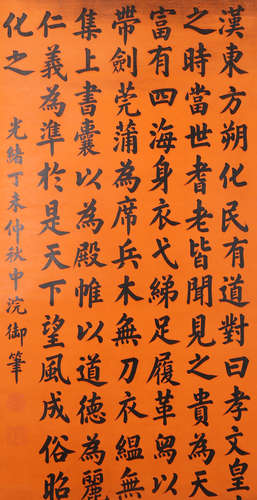 漢東方朔化民有道對曰孝文皇
之時當世耆老皆聞見之貴為天
富有四海身衣弋綈足履革舄以
帶劍莞蒲為席兵木無刀衣縕無
集上書囊以為殿帷以道德為麗
仁義為準於是天下望風成俗昭
化之
光緒丁未仲秋中浣御筆